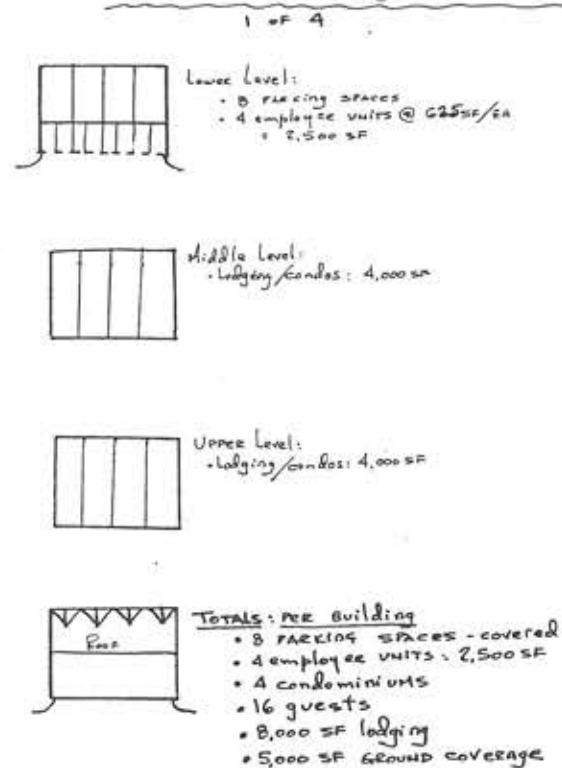 1 of 4
Lower Level:
• 8 PARKING SPACES
• 4 employee UNITS @ 625 SF/EA
= 2,500 SF
Middle Level:
• Lodging/condos: 4,000 SF
UPPER Level:
• Lodging/condos: 4,000 SF
Roof
TOTALS: PER Building
• 8 PARKING SPACES - covered
• 4 employee UNITS: 2,500 SF
• 4 condominiums
• 16 guests
• 8,000 SF lodging
• 5,000 SF GROUND COVERAGE